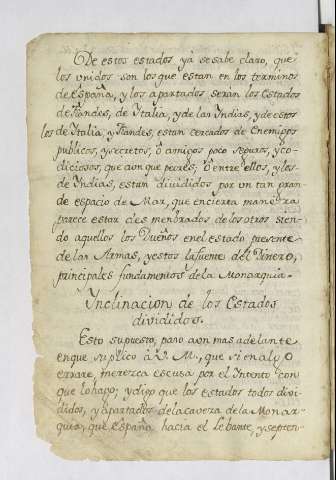 De estos estados yà se sabe claro, que
los unidos son los que estan en los terminos
de España, y los apartados seràn los Estados
de Flandes, de Italia, y de las Indias, y de estos
los de Italia, y Flandes, estan cercados de Enemigos
publicos, y secretos, ò amigos poco seguros, y co-
diciosos, que aun que ò entre ellos, y los
de Indias, estàn divididos por un tan gran-
de espacio de Mar, que en cierta manera
parece estàr desmenbrados de los otros sien-
do aquellos los Dueños en el estado presente
de las Armas, y estos la fuente del Dinero,
principales fundamentos de la Monarquia.
Inclinacion de los Estados
divididos.
Esto supuesto, paso a un mas adelante
en que suplico à V. M., que si en algo
errare, merezca escusa por el Intento con
que lo hago; y digo que los estados todos divi-
didos, y apartados de la cavezа de la Monar-
quia, que España hacia el Lebante, y septen-